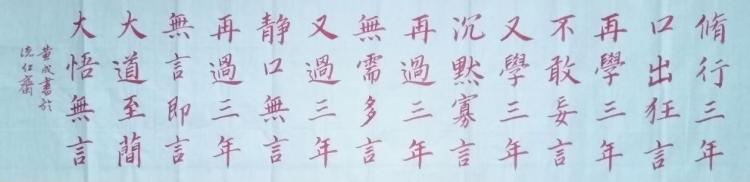 脩行三年
口出狂言
再學三年
不敢妄言
又學三年
沉默寡言
再過三年
無需多言
又過三年
静口無言
再過三年
無言即言
大道至蕳
大悟無言
黄成書於
流仁齋